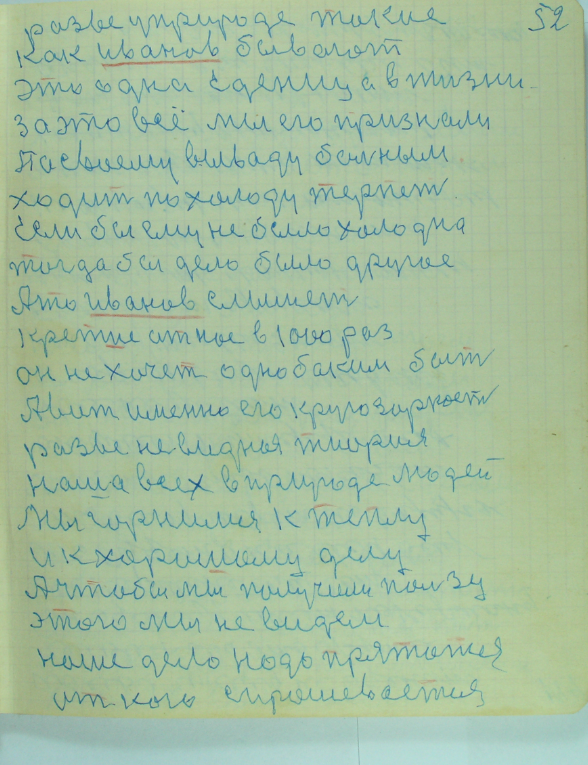 52
разве у природе такие
как иванов бывают
это одна Ќеденица в жизни
за это всё мы его признали
Па своему вываду бальным
ходит по холоду терпет
Если бы ему не было холодна
тогда бы дело было другое
Ато иванов слышет
в 1000 раз
он не хочет однобаким быт
Авит именно его кругозаркост
разве не видная тиория
наша всех в природе людей
Мы горнимся к теплу
и к хорошому делу
Ачтобы мы получили ползу
этого мы не видем
наше дело надо прятатся
ат кого спрашевается